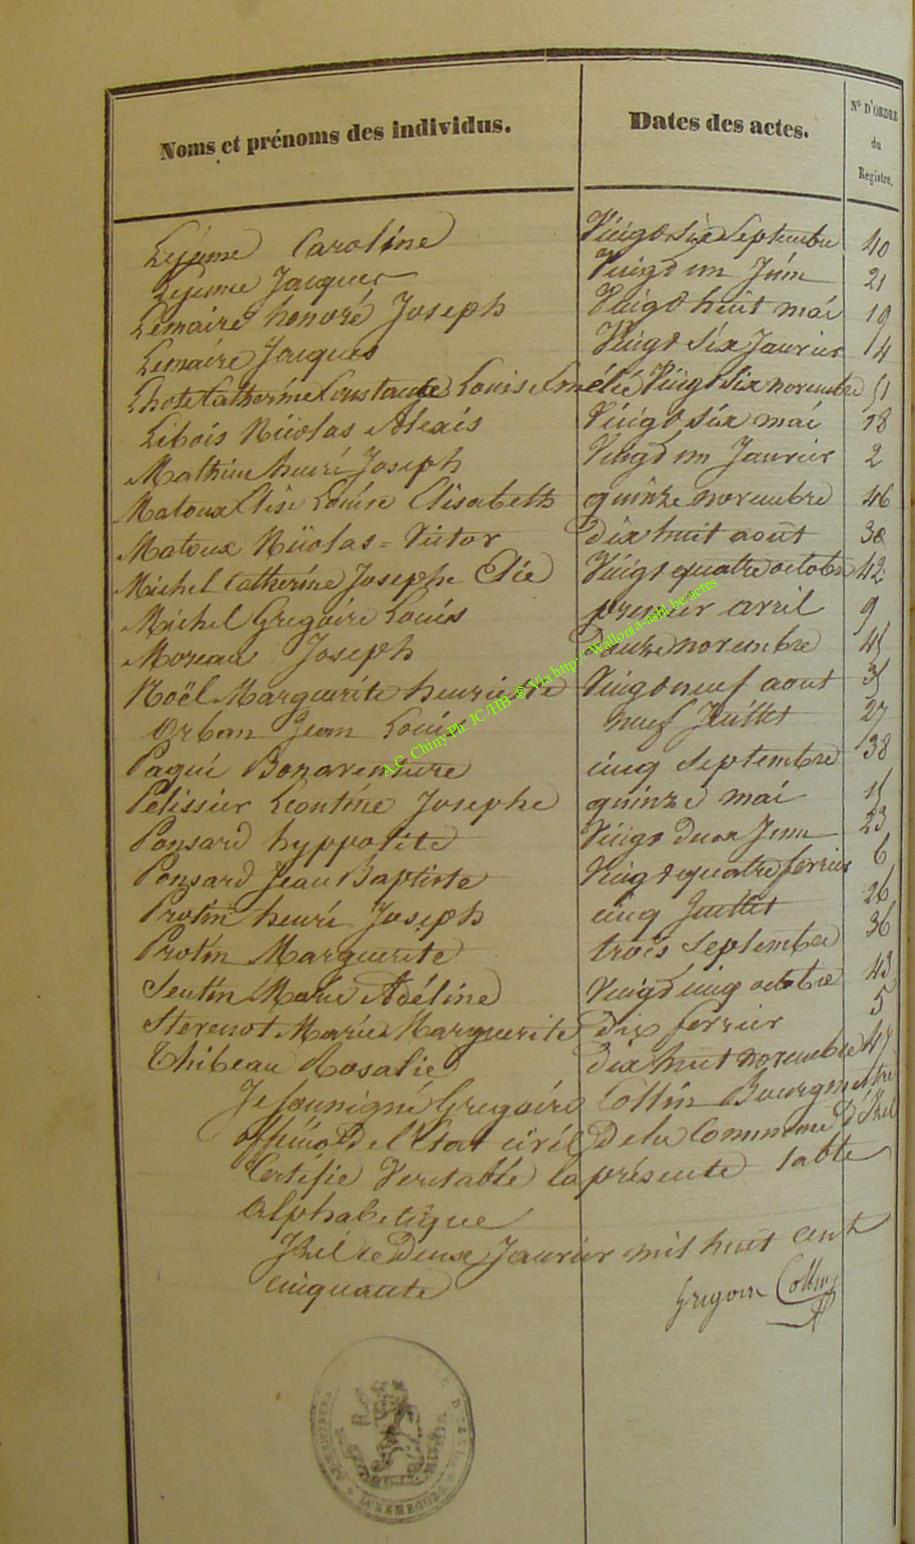 Noms et prénoms des individus. Dates des actes. N° D'ORDRE du Registre.
Lejeune Caroline Vingt six Septembre 40
Lejeune Jacques Vingt un Juin 21
Lemaire honoré Joseph Vingt huit mai 19
Lemaire Jacques Vingt Six Janvier 14
Lhote Catherine Constance Louise Amélie Vingt Six novembre 51
Libois Nicolas Alexis Vingt six mai 18
Mathieu henri Joseph Vingt un Janvier 2
Matoux Elise Louise Elisabeth quinze novembre 46
Matoux Nicolas=Victor dix huit aout 30
Michel Catherine Josephe Elie Vingt quatre octobre 42
Michel Gregoire Louis premier avril 9
Moreau Joseph Douze novembre 45
Noël Marguerite henriette Vingt neuf aout 35
Orban Jean Louis neuf Juillet 27
Paqui Bonaventure cinq Septembre 38
Pelissier Leontine Josephe quinze mai 15
Ponsard hyppolite Vingt Deux Juin 23
Ponsard Jean Baptiste Vingt quatre fevrier 6
Protin henri Joseph cinq Juillet 26
Protin Marguerite trois Septembre 36
Sentin Marie Adéline Vingt cinq octobre 43
Stevenot Marie Marguerite Dix fevrier 5
Thibeau Rosalie Dix huit novembre 47
Je Sousigné Gregoire Collin Bourgmestre
officier De l'Etat civil De la Commune D'Izel
Certifie Veritable la présente table
alphabetique
Izel le Deux Janvier mil huit cent
cinquante
Gregoire Collin
A.C. Chiny Ph. JC/HB ® Via http://Wallonia-asbl.be.actes
LUXEMBOURG